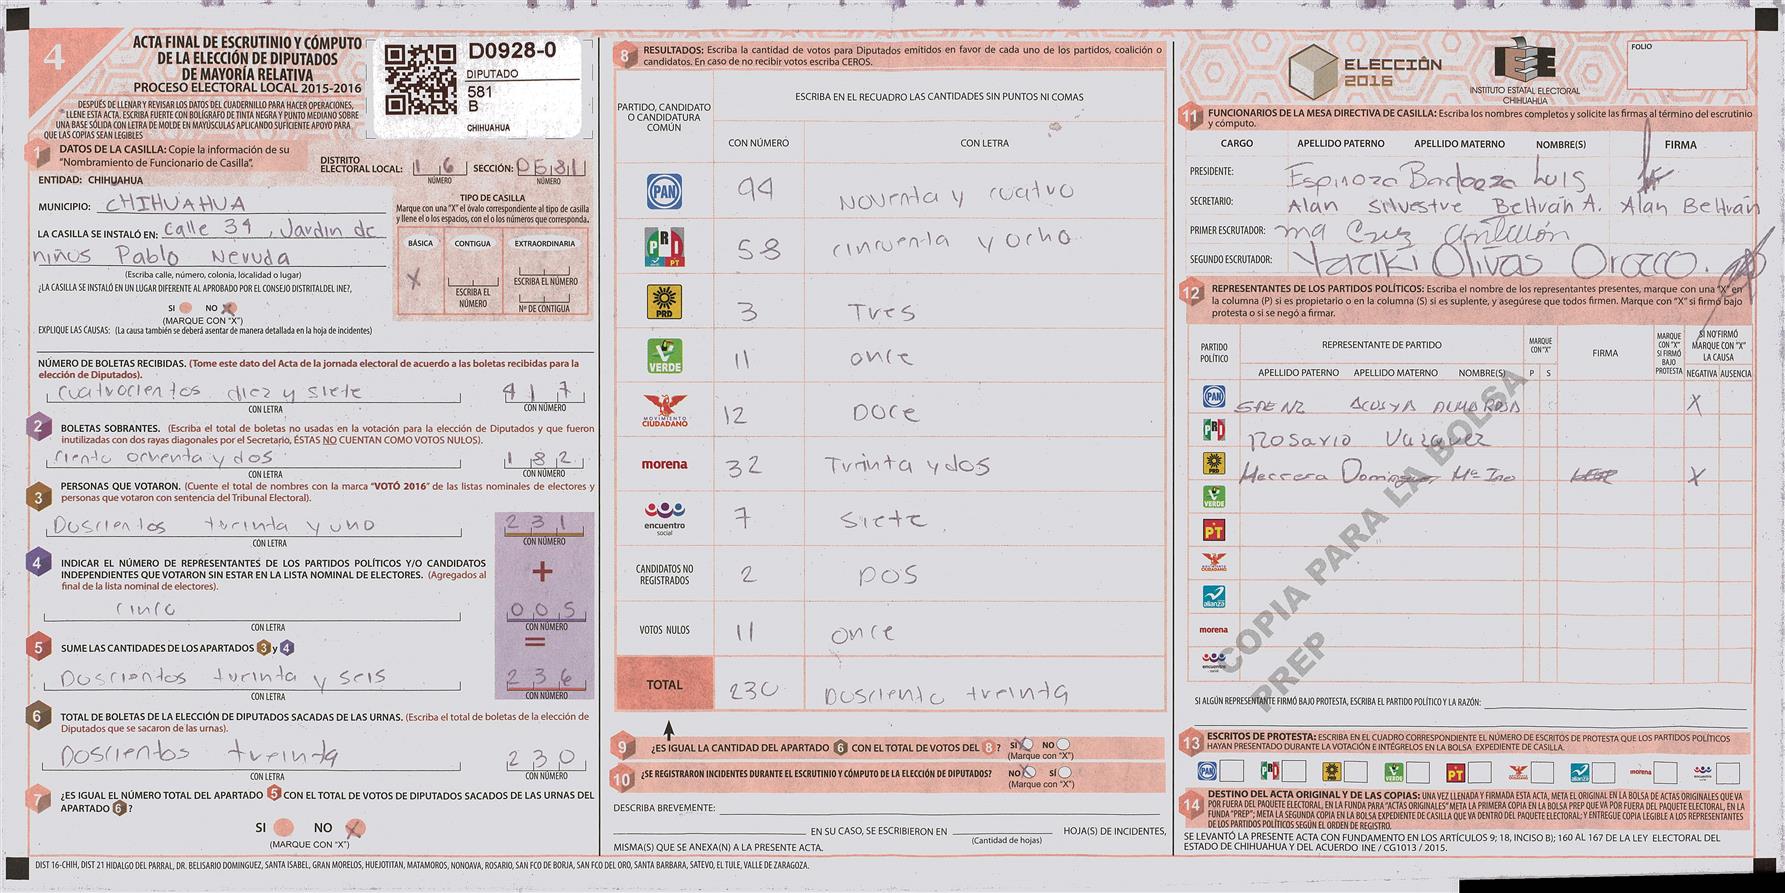 4
ACTA FINAL DE ESCRUTINIO Y CÓMPUTO
DE LA ELECCIÓN DE DIPUTADOS
DE MAYORÍA RELATIVA
PROCESO ELECTORAL LOCAL 2015-2016
DESPUÉS DE LLENAR Y REVISAR LOS DATOS DEL CUADERNILLO PARA HACER OPERACIONES,
LLENE ESTA ACTA. ESCRIBA FUERTE CON BOLÍGRAFO DE TINTA NEGRA Y PUNTO MEDIANO SOBRE
UNA BASE SÓLIDA CON LETRA DE MOLDE EN MAYÚSCULAS APLICANDO SUFICIENTE APOYO PARA
QUE LAS COPIAS SEAN LEGIBLES
D0928-0
DIPUTADO
581
B
CHIHUAHUA
1 DATOS DE LA CASILLA: Copie la información de su
"Nombramiento de Funcionario de Casilla".
DISTRITO
ELECTORAL LOCAL: 16 SECCIÓN: 0581
NÚMERO NÚMERO
ENTIDAD: CHIHUAHUA
MUNICIPIO: CHIHUAHUA
LA CASILLA SE INSTALÓ EN: calle 34, Jardin de
niños Pablo Neruda
(Escriba calle, número, colonia, localidad o lugar)
¿LA CASILLA SE INSTALÓ EN UN LUGAR DIFERENTE AL APROBADO POR EL CONSEJO DISTRITAL DEL INE?,
SI NO X
(MARQUE CON "X")
EXPLIQUE LAS CAUSAS: (La causa también se deberá asentar de manera detallada en la hoja de incidentes)
TIPO DE CASILLA
Marque con una "X" el óvalo correspondiente al tipo de casilla
y llene el o los espacios, con el o los números que corresponda.
BÁSICA CONTIGUA EXTRAORDINARIA
X
ESCRIBA EL NÚMERO
ESCRIBA EL NÚMERO
Nº DE CONTIGUA
NÚMERO DE BOLETAS RECIBIDAS. (Tome este dato del Acta de la jornada electoral de acuerdo a las boletas recibidas para la
elección de Diputados).
cuatrocientos diez y siete 417
CON LETRA CON NÚMERO
2 BOLETAS SOBRANTES. (Escriba el total de boletas no usadas en la votación para la elección de Diputados y que fueron
inutilizadas con dos rayas diagonales por el Secretario, ÉSTAS NO CUENTAN COMO VOTOS NULOS).
ciento ochenta y dos 182
CON LETRA CON NÚMERO
3 PERSONAS QUE VOTARON. (Cuente el total de nombres con la marca "VOTÓ 2016" de las listas nominales de electores y
personas que votaron con sentencia del Tribunal Electoral).
Doscientos treinta y uno 231
CON LETRA CON NÚMERO
+
4 INDICAR EL NÚMERO DE REPRESENTANTES DE LOS PARTIDOS POLÍTICOS Y/O CANDIDATOS
INDEPENDIENTES QUE VOTARON SIN ESTAR EN LA LISTA NOMINAL DE ELECTORES. (Agregados al
final de la lista nominal de electores).
cinco 005
CON LETRA CON NÚMERO
=
5 SUME LAS CANTIDADES DE LOS APARTADOS 3 y 4
Doscientos treinta y seis 236
CON LETRA CON NÚMERO
6 TOTAL DE BOLETAS DE LA ELECCIÓN DE DIPUTADOS SACADAS DE LAS URNAS. (Escriba el total de boletas de la elección de
Diputados que se sacaron de las urnas).
Doscientos treinta 230
CON LETRA CON NÚMERO
7 ¿ES IGUAL EL NÚMERO TOTAL DEL APARTADO 5 CON EL TOTAL DE VOTOS DE DIPUTADOS SACADOS DE LAS URNAS DEL
APARTADO 6?
SI NO X
(MARQUE CON "X")
DIST 16-CHIH, DIST 21 HIDALGO DEL PARRAL, DR. BELISARIO DOMINGUEZ, SANTA ISABEL, GRAN MORELOS, HUEJOTITAN, MATAMOROS, NONOAVA, ROSARIO, SAN FCO DE BORJA, SAN FCO DEL ORO, SANTA BARBARA, SATEVO, EL TULE, VALLE DE ZARAGOZA.
8 RESULTADOS: Escriba la cantidad de votos para Diputados emitidos en favor de cada uno de los partidos, coalición o
candidatos. En caso de no recibir votos escriba CEROS.
PARTIDO, CANDIDATO
O CANDIDATURA
COMÚN
ESCRIBA EN EL RECUADRO LAS CANTIDADES SIN PUNTOS NI COMAS
CON NÚMERO CON LETRA
PAN 94 Noventa y cuatro
PRI PT 58 cincuenta y ocho
PRD 3 Tres
VERDE 11 once
MOVIMIENTO CIUDADANO 12 DOCE
morena 32 Treinta y dos
encuentro social 7 Siete
CANDIDATOS NO REGISTRADOS 2 DOS
VOTOS NULOS 11 once
TOTAL 230 Dosciento treinta
9 ¿ES IGUAL LA CANTIDAD DEL APARTADO 6 CON EL TOTAL DE VOTOS DEL 8? SI X NO
(Marque con "X")
10 ¿SE REGISTRARON INCIDENTES DURANTE EL ESCRUTINIO Y CÓMPUTO DE LA ELECCIÓN DE DIPUTADOS? NO X SÍ
(Marque con "X")
DESCRIBA BREVEMENTE:
EN SU CASO, SE ESCRIBIERON EN HOJA(S) DE INCIDENTES,
(Cantidad de hojas)
MISMA(S) QUE SE ANEXA(N) A LA PRESENTE ACTA.
ELECCIÓN
2016
IEE
INSTITUTO ESTATAL ELECTORAL
CHIHUAHUA
FOLIO
11 FUNCIONARIOS DE LA MESA DIRECTIVA DE CASILLA: Escriba los nombres completos y solicite las firmas al término del escrutinio
y cómputo.
CARGO APELLIDO PATERNO APELLIDO MATERNO NOMBRE(S) FIRMA
PRESIDENTE: Espinoza Barboza Luis
SECRETARIO: Alan Silvestre Beltrán A. Alan Beltrán
PRIMER ESCRUTADOR: ma Cruz
SEGUNDO ESCRUTADOR: Olivas Orozco.
12 REPRESENTANTES DE LOS PARTIDOS POLÍTICOS: Escriba el nombre de los representantes presentes, marque con una "X" en
la columna (P) si es propietario o en la columna (S) si es suplente, y asegúrese que todos firmen. Marque con "X" si firmó bajo
protesta o si se negó a firmar.
PARTIDO POLÍTICO
REPRESENTANTE DE PARTIDO
APELLIDO PATERNO APELLIDO MATERNO NOMBRE(S)
MARQUE CON "X"
P S
FIRMA
MARQUE CON "X" SI FIRMÓ BAJO PROTESTA
SI NO FIRMÓ MARQUE CON "X" LA CAUSA
NEGATIVA AUSENCIA
PAN SAENZ ALMA ROSA X
PRI Rosario Vazquez
PRD Herrera Mª X
VERDE
PT
MOVIMIENTO CIUDADANO
alianza
morena
encuentro social
COPIA PARA LA BOLSA
PREP
SI ALGÚN REPRESENTANTE FIRMÓ BAJO PROTESTA, ESCRIBA EL PARTIDO POLÍTICO Y LA RAZÓN:
13 ESCRITOS DE PROTESTA: ESCRIBA EN EL CUADRO CORRESPONDIENTE EL NÚMERO DE ESCRITOS DE PROTESTA QUE LOS PARTIDOS POLÍTICOS
HAYAN PRESENTADO DURANTE LA VOTACIÓN E INTÉGRELOS EN LA BOLSA EXPEDIENTE DE CASILLA.
PAN PRI PRD VERDE PT alianza morena
14 DESTINO DEL ACTA ORIGINAL Y DE LAS COPIAS: UNA VEZ LLENADA Y FIRMADA ESTA ACTA, META EL ORIGINAL EN LA BOLSA DE ACTAS ORIGINALES QUE VA
POR FUERA DEL PAQUETE ELECTORAL, EN LA FUNDA PARA "ACTAS ORIGINALES" META LA PRIMERA COPIA EN LA BOLSA PREP QUE VA POR FUERA DEL PAQUETE ELECTORAL, EN LA
FUNDA "PREP"; META LA SEGUNDA COPIA EN LA BOLSA EXPEDIENTE DE CASILLA QUE VA DENTRO DEL PAQUETE ELECTORAL; Y ENTREGUE COPIA LEGIBLE A LOS REPRESENTANTES
DE LOS PARTIDOS POLÍTICOS SEGÚN EL ORDEN DE REGISTRO.
SE LEVANTÓ LA PRESENTE ACTA CON FUNDAMENTO EN LOS ARTÍCULOS 9; 18, INCISO B); 160 AL 167 DE LA LEY ELECTORAL DEL
ESTADO DE CHIHUAHUA Y DEL ACUERDO INE / CG1013 / 2015.